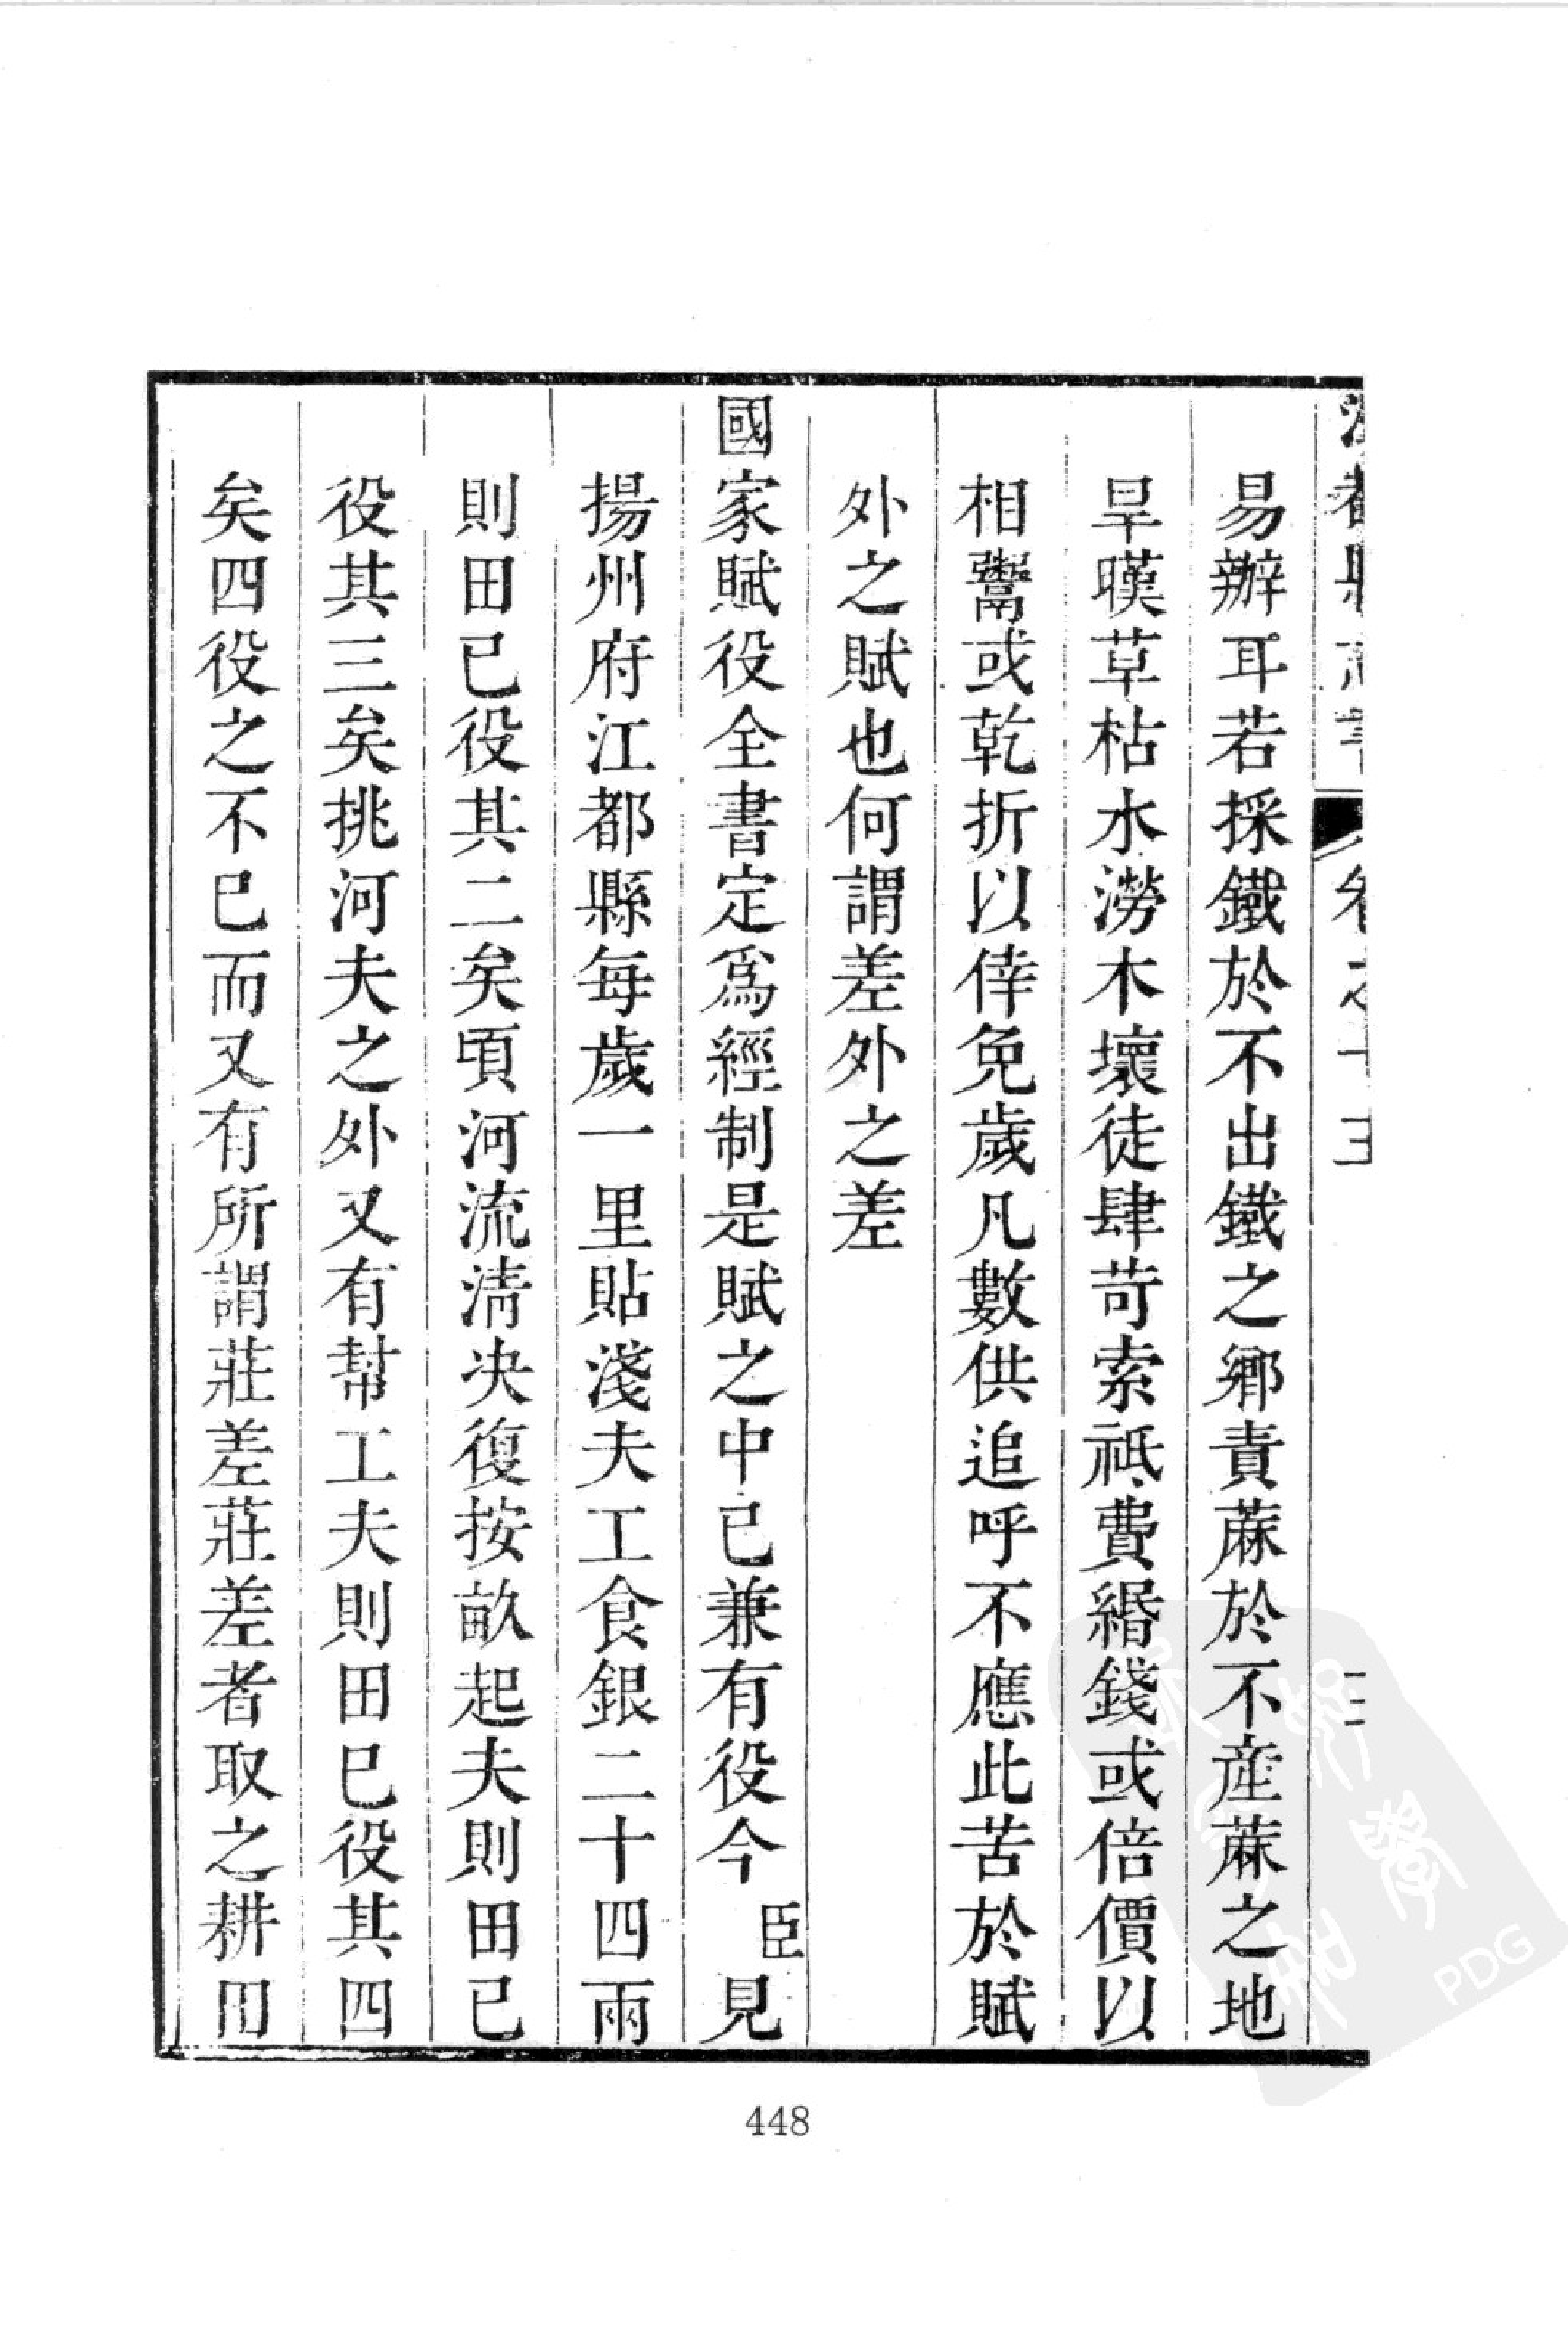 易辦耳若採鐵於不出鐵之鄉責蔴於不產蔴之地
旱暵草枯水澇木壞徒肆苛索祗費緡錢或倍價以
相鬻或乾折以倖免歲凡數供追呼不應此苦於賦
外之賦也何謂差外之差
國家賦役全書定爲經制是賦之中已兼有役今臣見
揚州府江都縣每歲一里貼淺夫工食銀二十四兩
則田已役其二矣頃河流淸决復按畝起夫則田已
役其三矣挑河夫之外又有幫工夫則田巳役其四
矣四役之不巳而又有所謂莊差莊差者取之耕田
448
PDG